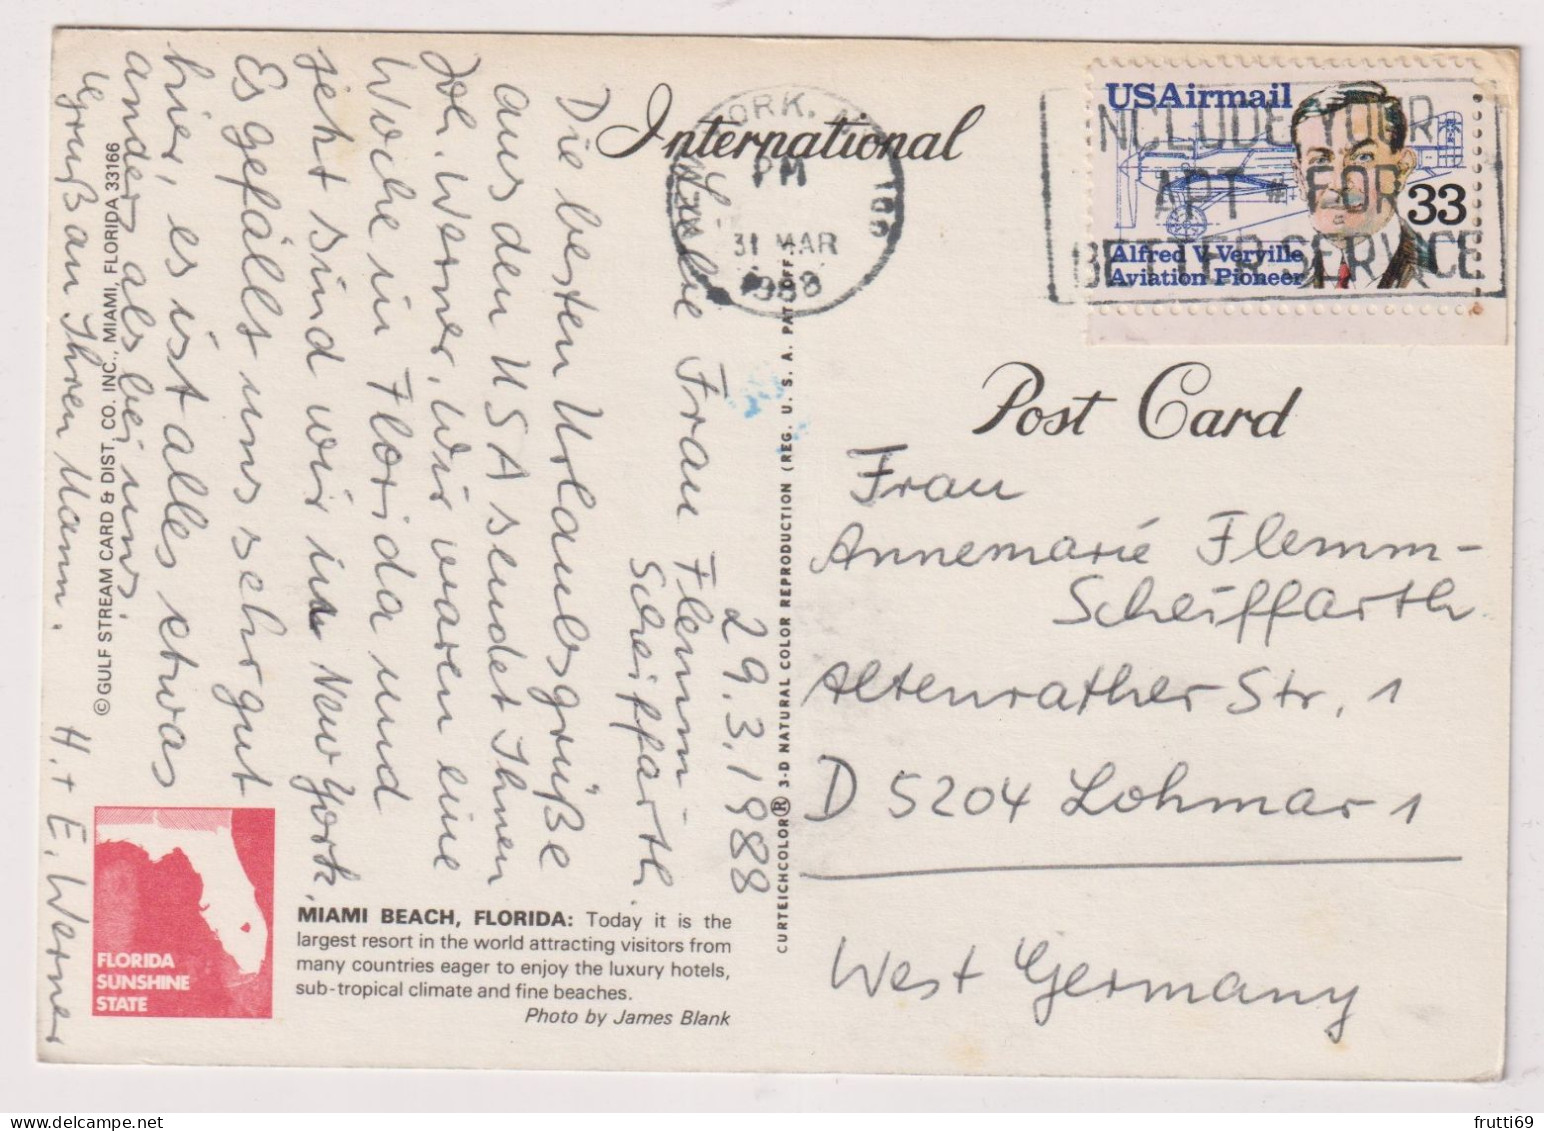 International
Post Card
USAirmail
33
Alfred V. Verville
Aviation Pioneer
YORK, N.Y. 100
PM
31 MAR
1988
INCLUDE YOUR
APT # FOR
BETTER SERVICE
29.3.1988
Liebe Frau Flemm-
Scheiffarth.
Die besten Urlaubsgrüße
aus den USA sendet Ihnen
Joh. Werner. Wir waren eine
Woche in Florida und
jetzt sind wir in New York.
Es gefällt uns sehr gut
hier, es ist alles etwas
anders als bei uns.
Gruß an Ihren Mann.
H. + E. Werner
Frau
Annemarie Flemm-
Scheiffarth
Altenrather Str. 1
D 5204 Lohmar 1
West Germany
©GULF STREAM CARD & DIST. CO. INC., MIAMI, FLORIDA 33166
CURTEICHCOLOR® 3-D NATURAL COLOR REPRODUCTION (REG. U. S. A. PAT. OFF.)
FLORIDA
SUNSHINE
STATE
MIAMI BEACH, FLORIDA: Today it is the
largest resort in the world attracting visitors from
many countries eager to enjoy the luxury hotels,
sub-tropical climate and fine beaches.
Photo by James Blank
frutti69